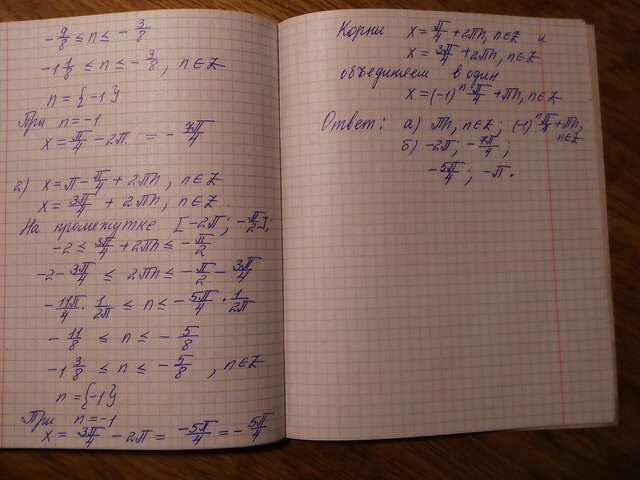 -9/8 ≤ n ≤ -3/8
-1 1/8 ≤ n ≤ -3/8, n∈Z
n = {-1}
При n = -1
x = π/4 - 2π = -7π/4
2) x = π - π/4 + 2πn, n∈Z
x = 3π/4 + 2πn, n∈Z.
На промежутке [-2π; -π/2]:
-2 ≤ 3π/4 + 2πn ≤ -π/2
-2 - 3π/4 ≤ 2πn ≤ -π/2 - 3π/4
-11π/4 · 1/2π ≤ n ≤ -5π/4 · 1/2π
-11/8 ≤ n ≤ -5/8
-1 3/8 ≤ n ≤ -5/8, n∈Z
n = {-1}
При n = -1
x = 3π/4 - 2π = -5π/4 = -5π/4
Корни x = π/4 + 2πn, n∈Z и
x = 3π/4 + 2πn, n∈Z
объединяем в один
x = (-1)ⁿ π/4 + πn, n∈Z
Ответ: а) πn, n∈Z; (-1)ⁿ π/4 + πn,
n∈Z
б) -2π; -7π/4;
-5π/4; -π.